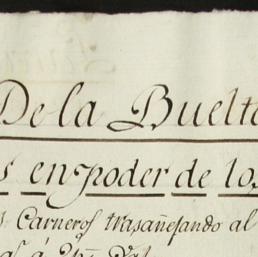 De la Buelta
s en poder de los
s Carneros trasañejando al